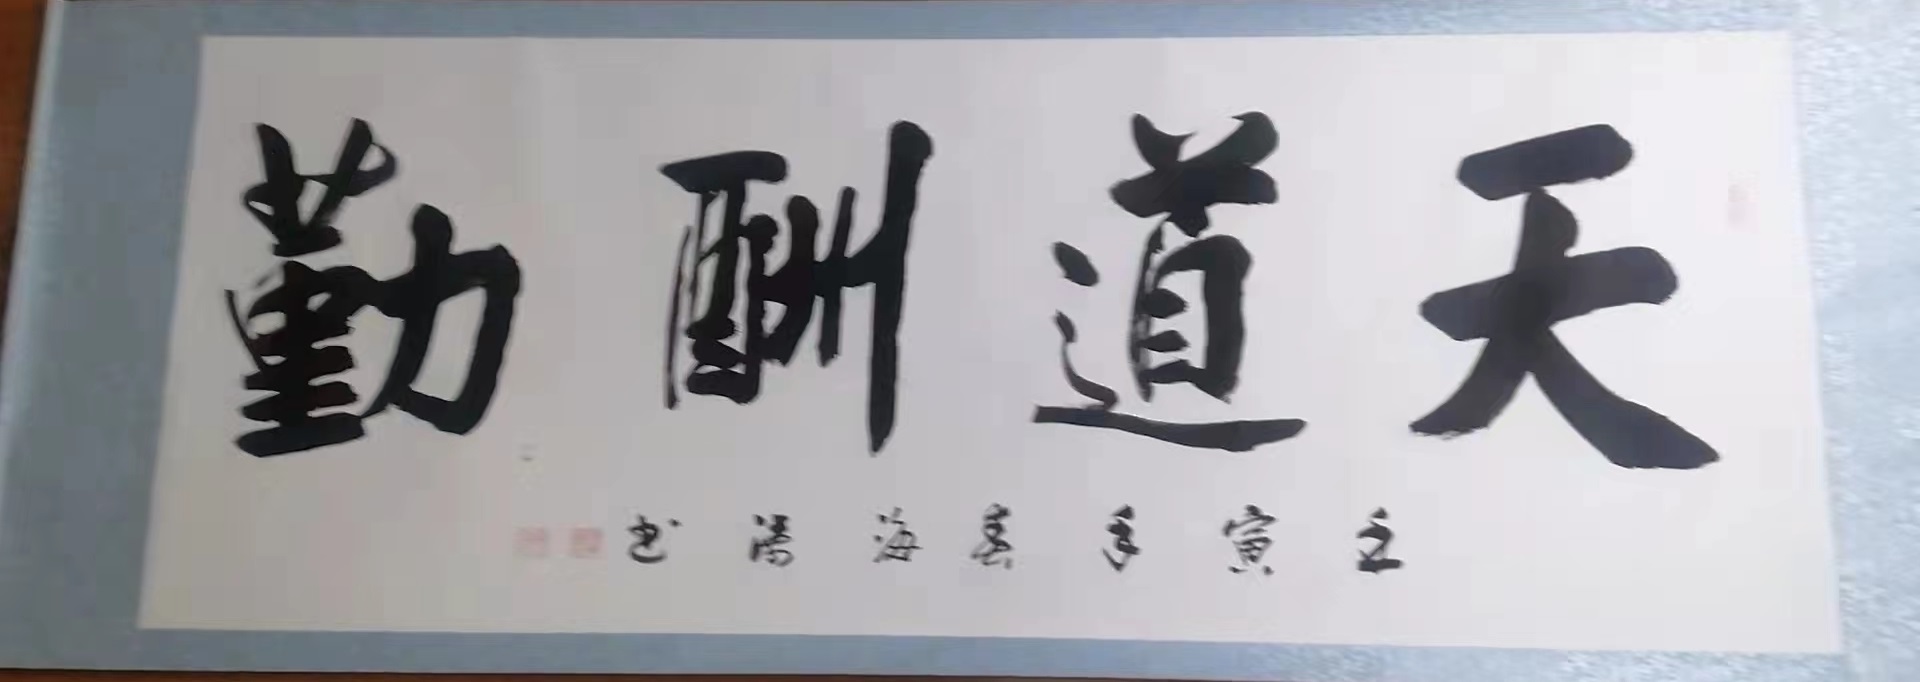 天道酬勤
壬寅年春海涛书